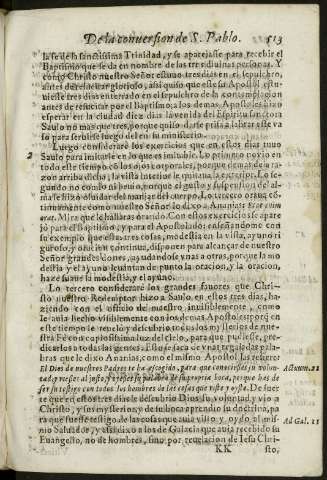 De la conuersion de S. Pablo. 513
la fè de la santissima Trinidad, y se aparejasse para recebir el
Baptismo que se da en nombre de las tres diuinas personas. Y
como Christo nuestro Señor estuuo tres dias en el sepulchro,
antes de resucitar glorioso, assi quiso que este su Apostol estu-
uiesse tres dias enterrado en el sepulcro de la contemplacion
antes de resucitar por el Baptismo; a los demas Apostoles hizo
esperar en la ciudad diez dias la venida del Espiritu santo: a
Saulo no mas que tres, porque quiso darse prisa a labrar esse va
so para seruirse luego del en su ministerio.
2 Luego considerarè los exercicios que en estos dias tuuo
Saulo para imitarle en lo que es imitable. Lo primero
todo este tiempo
razon arriba dicha; la vista interior le quitaua la exterior. Lo se-
gundo no comio ni beuio, porque el gusto y suspension del al-
ma le hizo oluidar del manjar del cuerpo. Lo tercero oraua con-
tinuamente como nuestro Señor le dixo a Ananias: Ecce enim
orat. Mira que le hallaras orando. Con estos exercicios se apare
jò para el Baptismo, y para el Apostolado: enseñandome con
su exemplo que estas tres cosas, modestia en la vista, ayuno ri
guroso, y oracion continua, disponen para alcançar de nuestro
Señor grandes dones, ayudandose vnas a otras, porque la mo
destia y el ayuno leuantan de punto la oracion, y la oracion
haze suaue la modestia, y el ayuno.
Lo tercero considerarè los grandes fauores que Chri-
sto nuestro Redemptor hizo a Saulo en estos tres dias, ha-
ziendo con el officio de maestro inuisiblemente, como
le auia hecho visiblemente con los demas Apostoles: porq̃ en
este tiempo le reuelò y descubrio todos los mysterios de nue-
stra Fè con copiosissima luz del cielo, para que pudiesse pre-
dicarlos a todas las gentes. Esto se saca de vnas regaladas pala-
bras que le dixo Ananias, como el mismo Apostol las refiere:
El Dios de nuestros Padres te ha escogido, para que conociesses su volun- Actuum. 22
tad, y viesses al justo, y oyesses palabras de su propria boca, porque has de
ser su testigo con todos los hombres de las cosas que viste y oyste. De suer
te que en estos tres dias le descubrio Dios su voluntad, y vio a
Christo, y sus mysterios, y de su boca aprendio su doctrina, pa
ra que fuesse testigo de las cosas que auia visto, y oydo al mis-
mo Saluador, y assi dixo a los de Galacia que auia recebido su Ad Gal. 11
Euangelio, no de hombres, sino por reuelacion de Iesu Chri-
KK sto,